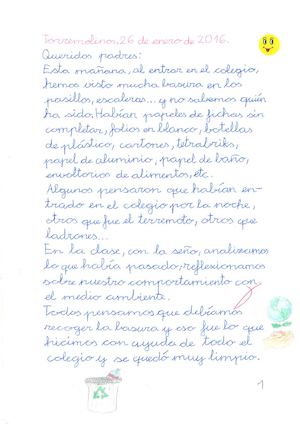 Torremolinos, 26 de enero de 2016.
Queridos padres:
Esta mañana, al entrar en el colegio,
hemos visto mucha basura en los
pasillos, escaleras... y no sabemos quién
ha sido. Habían papeles de fichas sin
completar, folios en blanco, botellas
de plástico, cartones, tetrabriks,
papel de aluminio, papel de baño,
envoltorios de alimentos, etc.
Algunos pensaron que habían en-
trado en el colegio por la noche,
otros que fue el terremoto, otros que
ladrones...
En la clase, con la seño, analizamos
lo que había pasado; reflexionamos
sobre nuestro comportamiento con
el medio ambiente.
Todos pensamos que debíamos
recoger la basura y eso fue lo que
hicimos con ayuda de todo el
colegio y se quedó muy limpio.
1